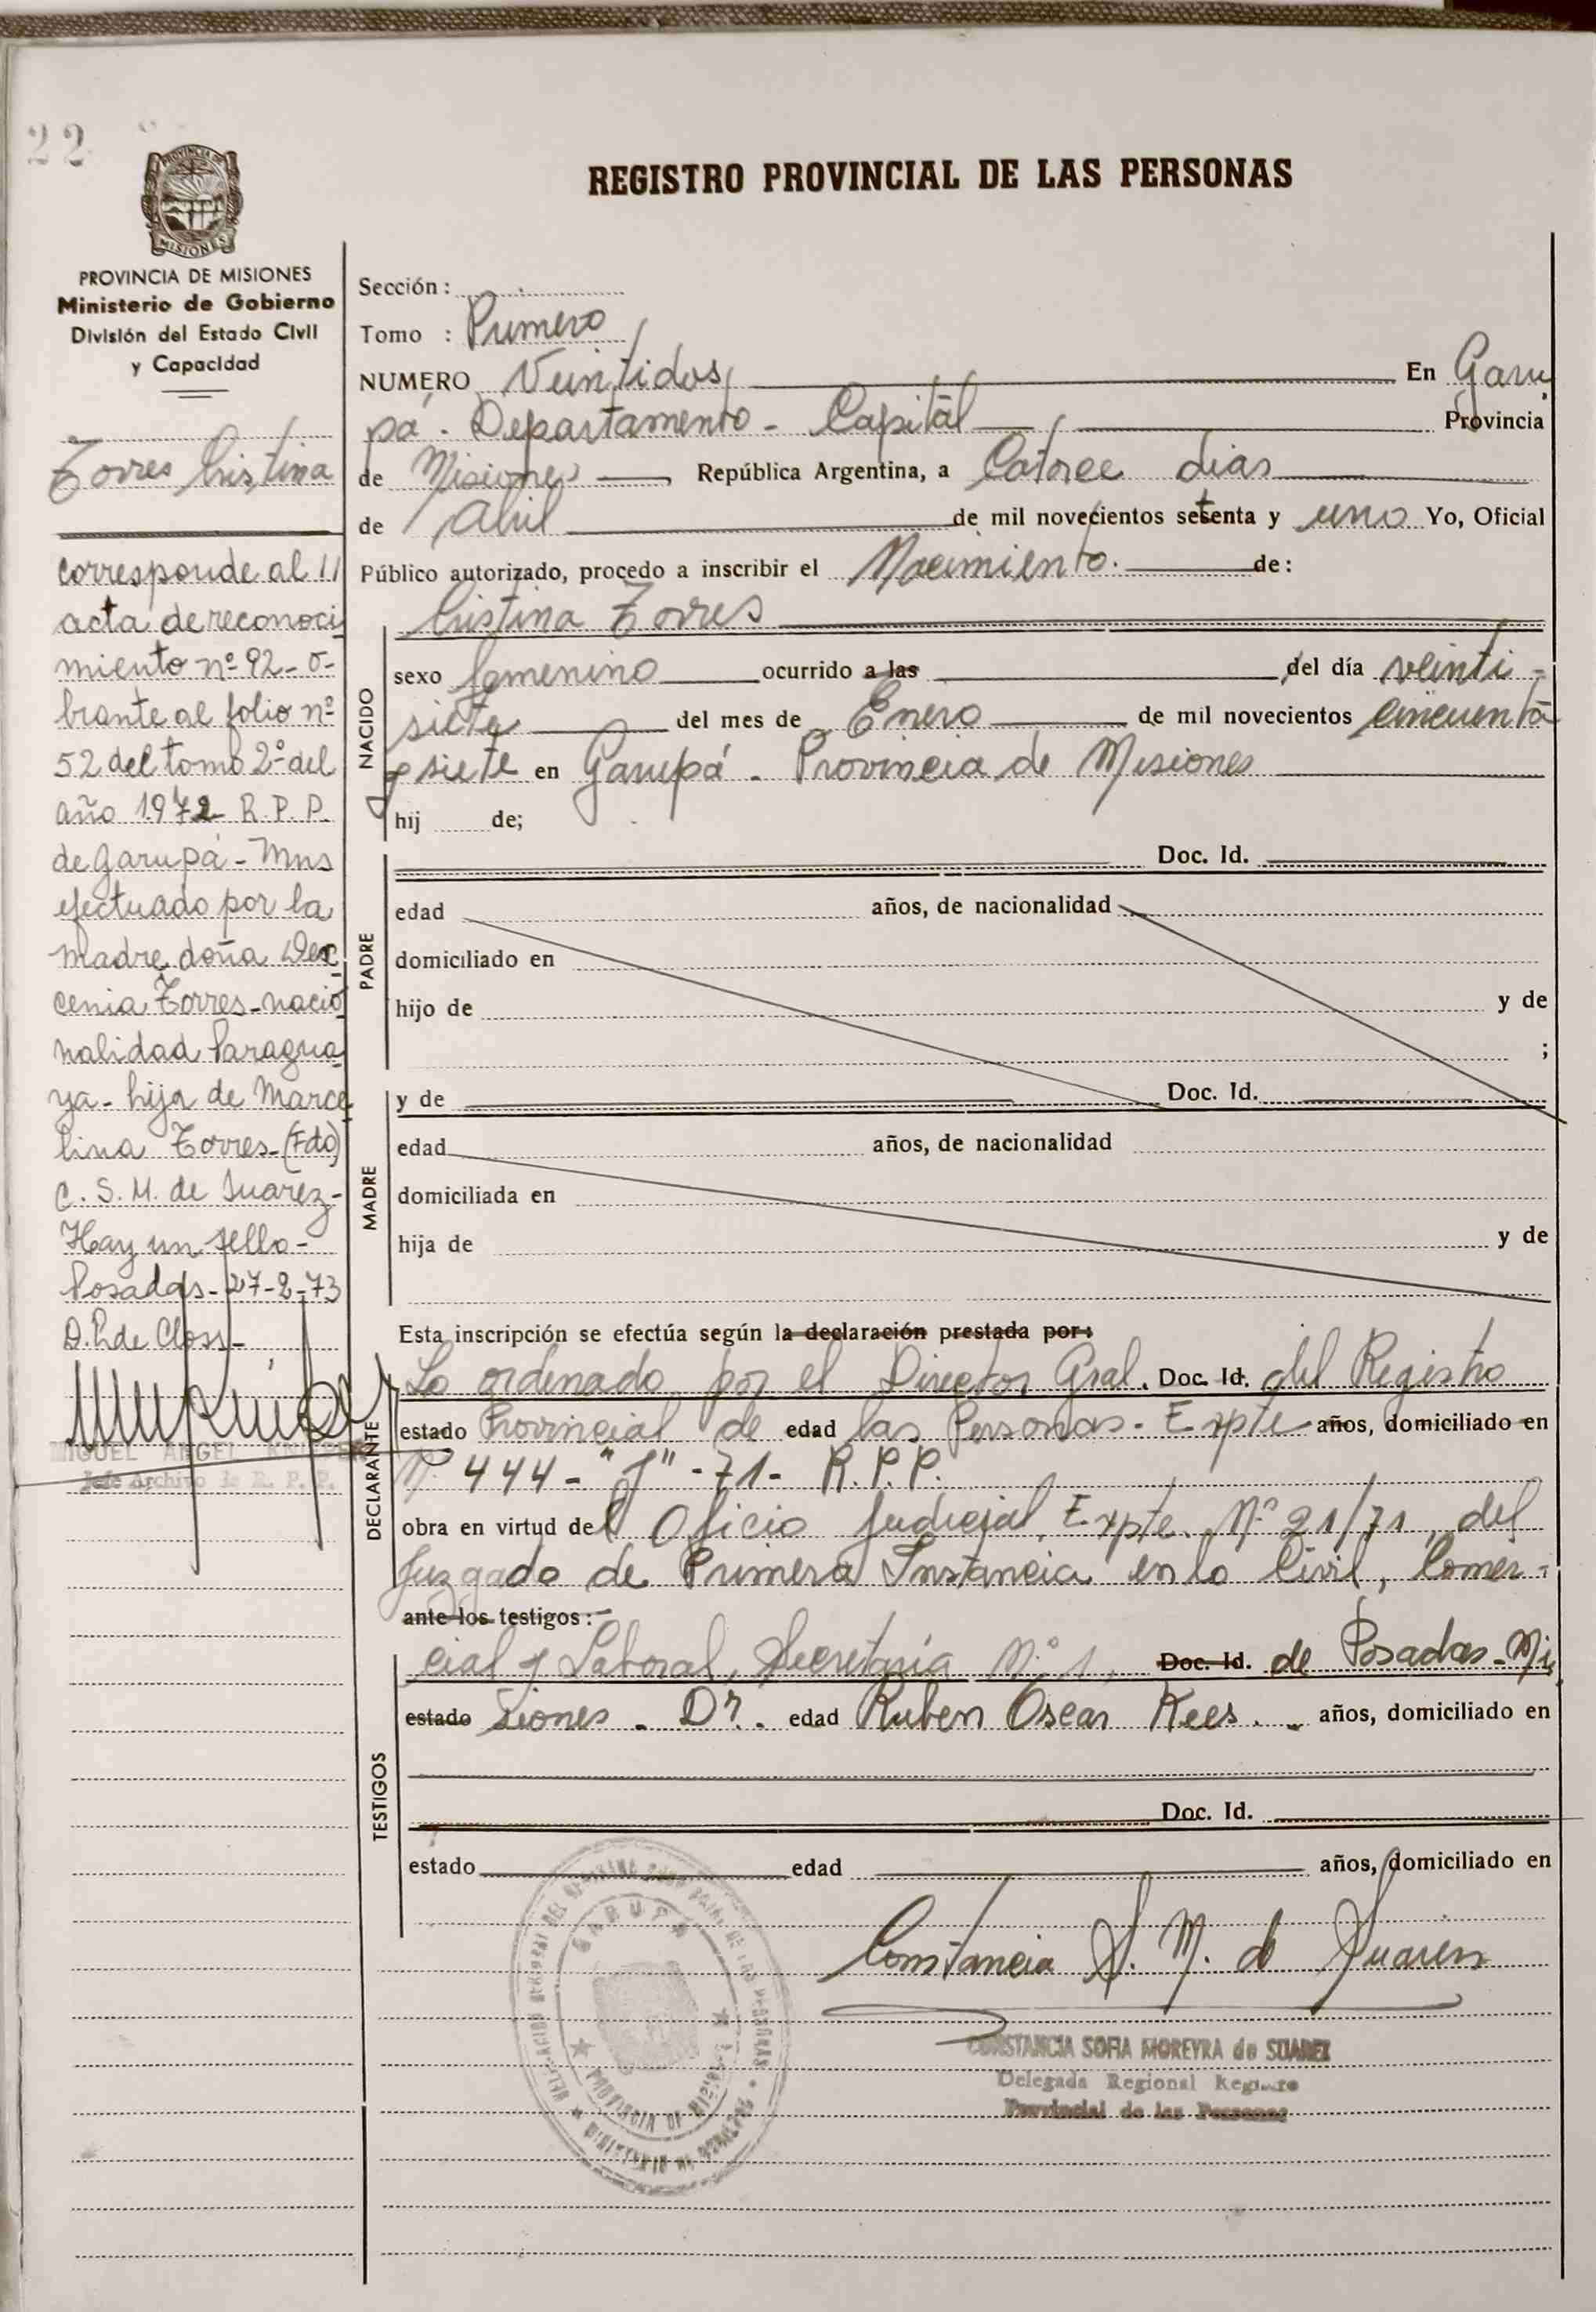 22
PROVINCIA DE
MISIONES
REGISTRO PROVINCIAL DE LAS PERSONAS
PROVINCIA DE MISIONES
Ministerio de Gobierno
División del Estado Civil
y Capacidad
Torres Cristina
corresponde al
acta de reconoci
miento nº 92-o-
brante al folio nº
52 del tomo 2º del
año 1972 R.P.P.
de Garupá - Mns
efectuado por la
madre doña Des
cenia Torres - nacio
nalidad Paragua
ya - hija de Marce
lina Torres - (Fdo)
C. S. M. de Suarez -
Hay un sello -
Posadas - 27-8-73
D. P. de Closs -
MIGUEL ANGEL
Jefe Archivo de R. P. P.
Sección :
Tomo : Primero
NUMERO Veintidos En Garu
pá. Departamento - Capital Provincia
de Misiones República Argentina, a Catorce dias
de Abril de mil novecientos setenta y uno Yo, Oficial
Público autorizado, procedo a inscribir el Nacimiento. de:
Cristina Torres
NACIDO
sexo femenino ocurrido a las del día veinti -
siete del mes de Enero de mil novecientos cincuenta
y siete en Garupá - Provincia de Misiones
hij de;
PADRE
Doc. Id.
edad años, de nacionalidad
domiciliado en
hijo de y de
;
MADRE
y de Doc. Id.
edad años, de nacionalidad
domiciliada en
hija de y de
Esta inscripción se efectúa según la declaración prestada por:
DECLARANTE
Lo ordenado por el Director Gral. Doc. Id. del Registro
estado Provincial de edad las Personas - Expte años, domiciliado en
Nº 444 - "J" - 71 - R.P.P.
obra en virtud del Oficio Judicial Expte. Nº 21/71, del
Juzgado de Primera Instancia en lo Civil, Comer-
ante los testigos: -
TESTIGOS
cial y Laboral, Secretaría Nº 1, Doc. Id. de Posadas - Mi
estado siones - Dr. edad Ruben Oscar Rees. - años, domiciliado en
Doc. Id.
estado edad años, domiciliado en
GARUPA
PROVINCIA DE MISIONES
MINISTERIO DE GOBIERNO
Constancia S. M. d Suarez
CONSTANCIA SOFIA MOREYRA de SUAREZ
Delegada Regional Registro
Provincial de las Personas